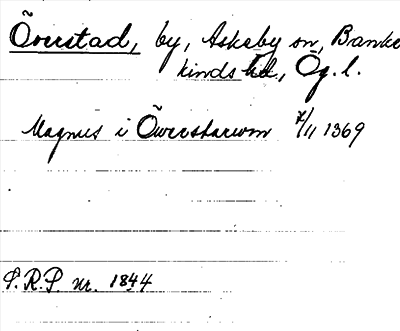 Överstad, by, Askeby sn, Banke
kinds hd, Ög. l.
Magnus i Öwerstaworn 7/11 1369
S.R.P. nr. 1844